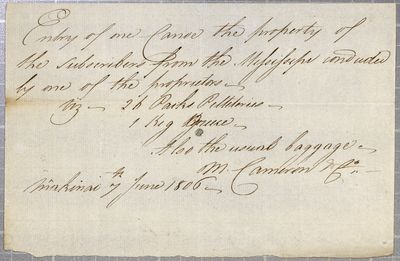 Entry of one Canoe the property of
the Subscribers from the Missisipi conducted
by one of the proprietors
viz 26 Packs Peltteries
1 Keg Greece
Also the usual baggage
M. Cameron & Co.
Makinac 7th June 1806